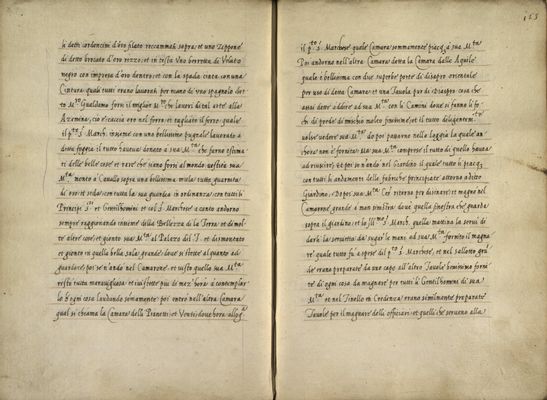 li detti cordoncini d'oro filato reccammati sopra; et uno Zeppone
di detto brocato d'oro rizzo; et in testa Una berretta di Veluto
negro con impresa d'oro dentro; et con la spada cinta con una
Cintura quali tutti erano lavorati per mano di uno spagnolo detto
Mro Gualdamo fori il miglior Mro che lavori di tal arte alla
Azemina; cio è caccia oro nel ferro et taglia il ferro. quale
il pto S. March. insieme con una bellissimo pugnale lavorato a
detta foggia il tutto haueua donato a sua Mta che furno estima
ti delle belle cose et rare che siano forsi al mondo. usisti sua
Mta montò à Cavallo sopra una bellissima mula tutta guarnita
di oro et seda, con tutta la sua guardia in ordinanza, con tutti li
Principi, Sri et Gentilhomini et col S. Marchese a canto andorno
sempre raggionando insieme della Bellezza de la Terra et de mol
te altre cose, et gionto sua Mta al Palazo del T. et dismontato
et gionto in quella bella sala grande doue si stette al quanto ad
guardare; poi se n'andò nel Camarone, et visto quello sua Mta
restò tutta maravigliosa, et ivi stette piu di mez' hora à contemplar
lo, ogni cosa laudando sommamente; poi entrò nell'altra Camara
qual si chiama la Camara delli Pianetti, et Venti, dove hora alloga
153
il pto S. Marchese quale Camara sommamente piacq à sua Mta
Poi andorno nell'altra Camara detta la Camara dalle Aquile
quale è bellissima con due superbe porte di diaspro orientale
per uso di detta Camara, et una Tauola pur di Diaspro cosa che
assai dette d'adire ad sua Mta con li Camini doue si fanno li fo
chi di porfido di mischio molto finissime; et il tutto diligentem.te
volse vedere sua Mta do poi passorno nella loggia la quale an
chora non è fornita. Ma sua Mta comprese il tutto di quello haueua
ad riuscire; et poi se n'andò nel Giardino il quale tutto li piacq
con tutti li andamenti delle fabriche principiate attorno a detto
Giardino; Dopoi sua Mta Ces. ritornò per disinare, et magnò nel
Camarone grande à man sinistra doue quella finestra che guarda
sopra il giardino; et lo Illmo S. March. quella mattina la servì di
darli la servietta da sugar le mani ad sua Mta fornito il magna
re quale tutto fu à spese del pto S. Marchese, et nel sallotto gran
de erano preparate da uno capo all'altro Tauole benissimo forni
te di ogni cosa da magnare per tutti li Gentilhomini di sua
Mta et nel Tinello in Credenza erano similmente preparate
Tauole per il magnare delli officiari et quelli che seruono alla